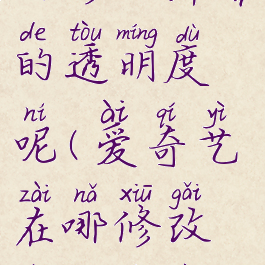 de tòu míng dù
的透明度
ní ài qí yì
呢(爱奇艺
zài nǎ xiū gǎi
在哪修改